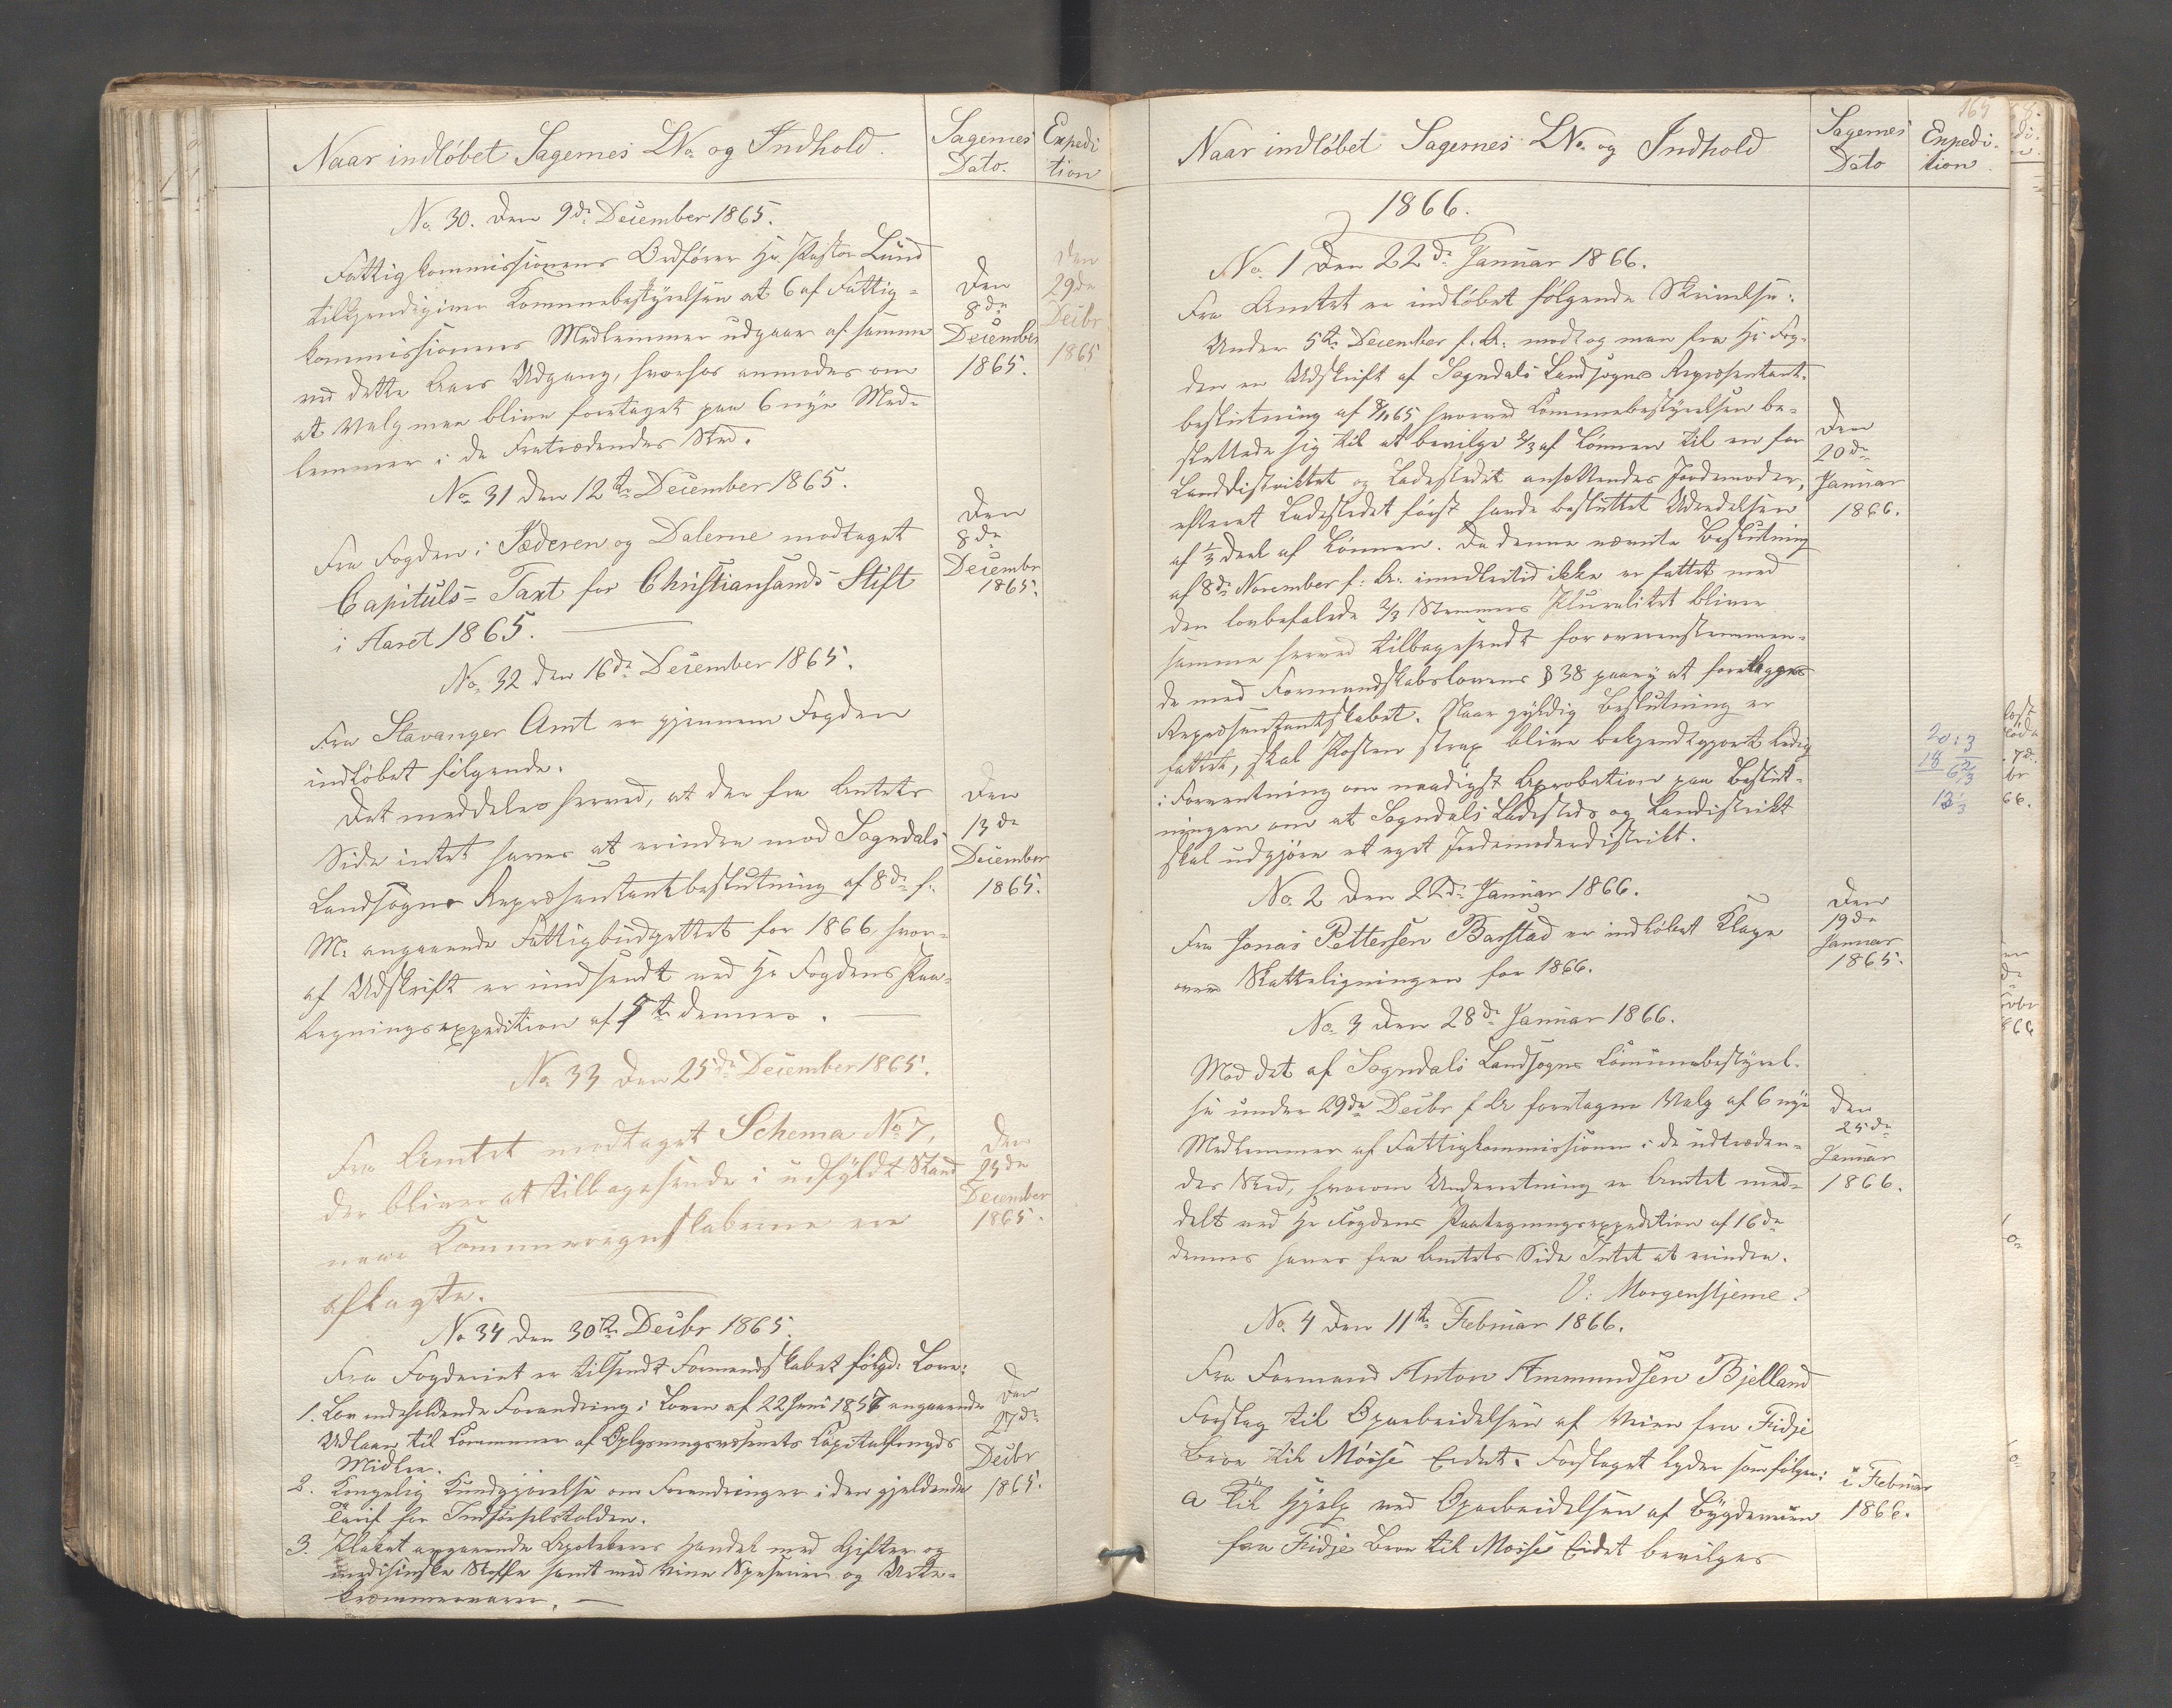 Naar indløbet Sagernes LNo. og Indhold.
Sagernes Dato.
Expedi tion
No. 30. Den 9de December 1865.
Fattigkommissionens Ordfører Hr. Pastor Lund
tilkjendegiver Kommunebestyrelsen at 6 af Fattig-
kommissionens Medlemmer udgaar af samme
ved dette Aars Udgang, hvorhos anmodes om
at Valg maa blive foretaget paa 6 nye Med-
lemmer i de Fratrædendes Sted.
Den
8de
December
1865.
Den
29de
Decbr
1865
No. 31 Den 12te December 1865.
Fra Fogden i Jæderen og Dalerne modtaget
Capituls-Taxt for Christiansands Stift
i Aaret 1865.
Den
8de
Decembr
1865.
No. 32 den 16de December 1865.
Fra Stavanger Amt er gjennem Fogden
indløbet følgende.
Det meddeles herved, at der fra Amtets
Side intet haves at erindre mod Sogndals
Landsogns Repræsentantbeslutning af 8de f.
M. angaaende Fattigbudgettet for 1866, hvor-
af Udskrift er indsendt ved Hr Fogdens Paa-
tegningsexpedition af 7te dennes.
Den
13de
December
1865.
No. 33 Den 25de December 1865.
Fra Amtet modtaget Schema No. 7,
der bliver at tilbagesende i udfyldt Stand
naar Kommuneregnskaberne ere
aflagte.
Den
23de
December
1865.
No 34 den 30te Decbr 1865.
Fra Fogderiet er tilsendt Formandskabet følgd: Love:
1. Lov indeholdende Forandring i Loven af 22 Juni 1857 angaaende
Udlaan til Kommuner af Oplysningsvæsenets Capitalfonds
Midler.
2. Kongelig Kundgjørelse om Forandringer i den gjældende
Tarif for Indførselstolden.
3. Plakat angaaende Apothekeres Handel med Gifter og
medisinske Stoffe samt med Vine Speserier og Urte-
kræmmervarer.
Den
27de
Decbr
1865.
165
Naar indløbet Sagernes LNo. og Indhold
Sagernes Dato
Expedi- tion.
1866.
No. 1 Den 22de Januar 1866.
Fra Amtet er indløbet følgende Skrivelse:
Under 5te December f. A. modtog man fra Hr Fog-
den en Udskrift af Sogndals Landsogns Repræsentant-
beslutning af 8/11 65 hvorved Kommunebestyrelsen be-
sluttede sig til at bevilge 2/3 af Lønnen til en for
Landdistriktet og Ladestedet ansættendes Jordemoder,
efterat Ladestedet først havde besluttet Udredelsen
af 1/3 Deel af Lønnen. Da denne nævnte Beslutning
af 8de November f: A: imidlertid ikke er fattet med
den lovbefalede 2/3 Stemmers Pluralitet bliver
samme herved tilbagesendt for overensstemmen-
de med Formandskabslovens § 38 paany at forelægges
Repræsentantskabet. Naar gyldig Beslutning er
fattet, skal Posten strax blive bekjendtgjort ledig
i Forventning om naadigst Aprobation paa Beslut-
ningen om at Sogndals Ladesteds og Landistrikt
skal udgjøre et eget Jordemoderdistrikt.
Den
20de
Januar
1866.
20:3
18 6 2/3
13 1/3
No. 2 Den 22de Januar 1866.
Fra Jonas Pettersen Barstad er indløbet Klage
over Skatteligningen for 1866.
Den
19de
Januar
1865.
No. 3 Den 28de Januar 1866.
Mod det af Sogndals Landsogns Communebestyrel-
se under 29de Decbr f A foretagne Valg af 6 nye
Medlemmer af Fattigkommissionen i de udtræden-
des Sted, hvorom Underretning er Amtet med-
delt ved Hr Fogdens Paategningsexpedition af 16de
dennes haves fra Amtets Side Intet at erindre.
V: Morgenstjerne.
Den
25de
Januar
1866.
No. 4 Den 11te Februar 1866.
Fra Formand Anton Ammundsen Bjelland
Forslag til Oparbeidelsen af Veien fra Fidje
Broe til Moise Eidet. Forslaget lyder som følger:
a Til Hjelp ved Oparbeidelsen af Bygdeveien
fra Fidje Broe til Moise Eidet bevilges
i Februar
1866.